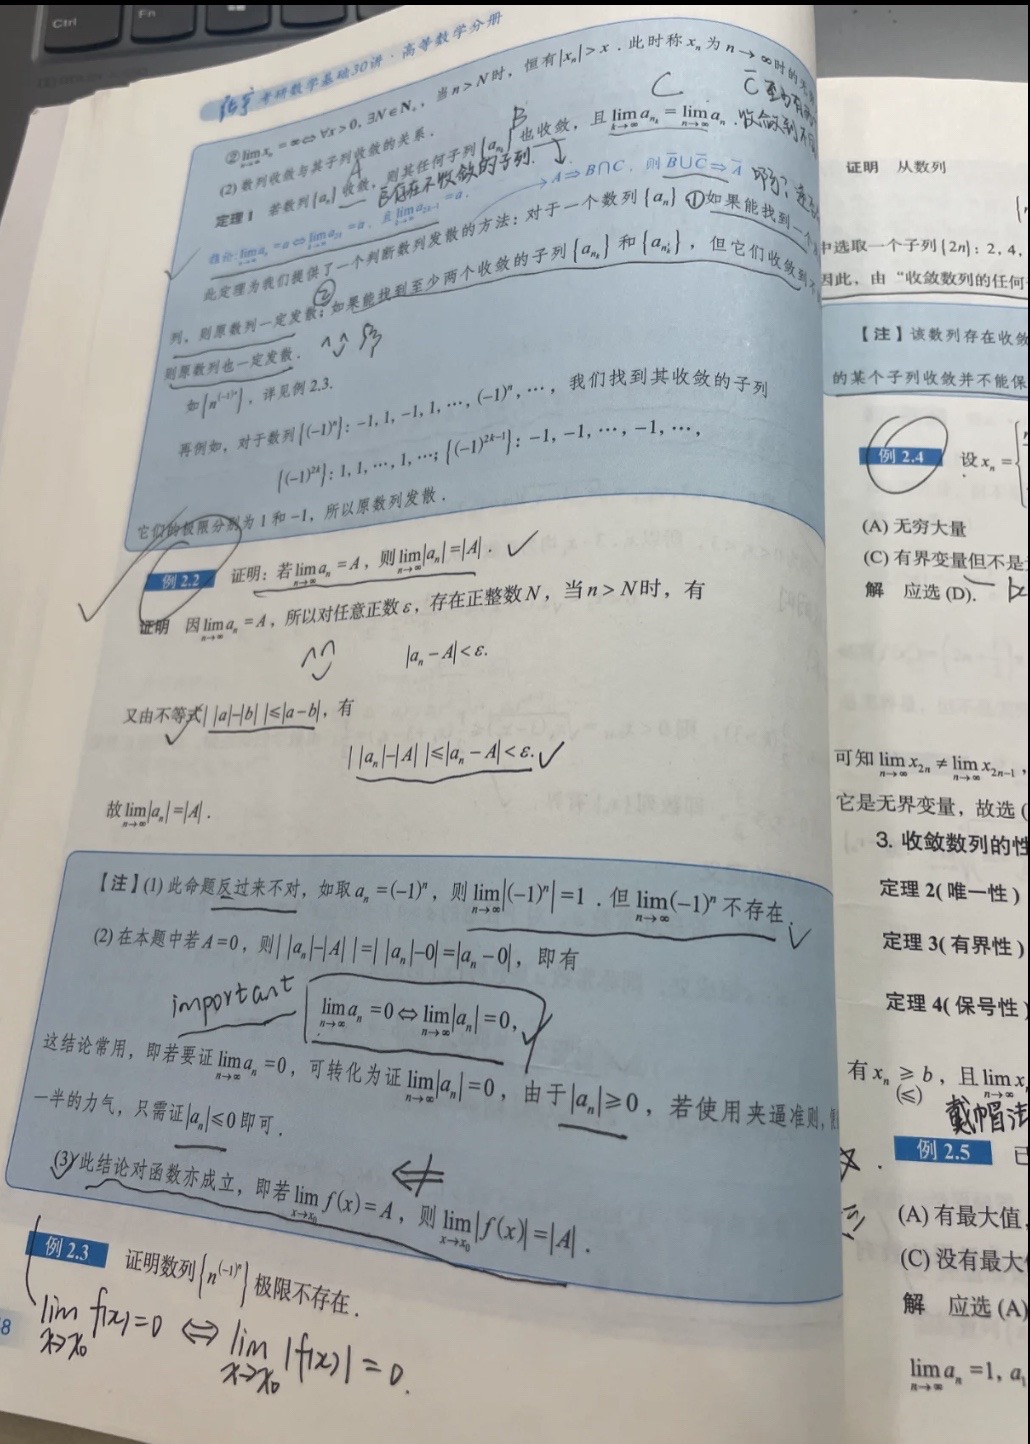 Ctrl
Fn
张宇考研数学基础30讲·高等数学分册
② lim x_n = ∞ ⇔ ∀x > 0, ∃N ∈ N₊, 当 n > N 时, 恒有 |x_n| > x. 此时称 x_n 为 n→∞ 时的无
n→∞
(2) 数列收敛与其子列收敛的关系.
A
B
C
C̄
定理1 若数列{a_n}收敛, 则其任何子列{a_{n_k}}也收敛, 且 lim_{k→∞} a_{n_k} = lim_{n→∞} a_n.
存在不收敛的子列.
A⇒B∩C, 则 B̄∪C̄⇒Ā
推论: lim a_n = a ⇔ lim a_{2n} = a, 且 lim a_{2n-1} = a.
此定理为我们提供了一个判断数列发散的方法: 对于一个数列{a_n} ①如果能找到一个
列, 则原数列一定发散; ②如果能找到至少两个收敛的子列{a_{n_k}}和{a_{n_k'}}, 但它们收敛到
则原数列也一定发散.
如{n^{(-1)^n}}, 详见例 2.3.
再例如, 对于数列{(-1)^n}: -1, 1, -1, 1, …, (-1)^n, …, 我们找到其收敛的子列
{(-1)^{2k}}: 1, 1, …, 1, …; {(-1)^{2k-1}}: -1, -1, …, -1, …,
它们的极限分别为 1 和 -1, 所以原数列发散.
例 2.2 证明: 若 lim_{n→∞} a_n = A, 则 lim_{n→∞} |a_n| = |A|.
证明 因 lim_{n→∞} a_n = A, 所以对任意正数 ε, 存在正整数 N, 当 n > N 时, 有
|a_n - A| < ε.
又由不等式| |a|-|b| |≤|a-b|, 有
| |a_n|-|A| |≤|a_n - A|<ε.
故 lim_{n→∞} |a_n| = |A|.
【注】(1) 此命题反过来不对, 如取 a_n = (-1)^n, 则 lim_{n→∞} |(-1)^n| = 1. 但 lim_{n→∞} (-1)^n 不存在.
(2) 在本题中若 A = 0, 则| |a_n|-|A| | = | |a_n|-0| = |a_n-0|, 即有
important
lim_{n→∞} a_n = 0 ⇔ lim_{n→∞} |a_n| = 0,
这结论常用, 即若要证 lim_{n→∞} a_n = 0, 可转化为证 lim_{n→∞} |a_n| = 0, 由于 |a_n| ≥ 0, 若使用夹逼准则,
一半的力气, 只需证 |a_n| ≤ 0 即可.
(3) 此结论对函数亦成立, 即若 lim_{x→x₀} f(x) = A, 则 lim_{x→x₀} |f(x)| = |A|.
例 2.3 证明数列{n^{(-1)^n}}极限不存在.
lim_{x→x₀} f(x) = 0 ⇔ lim_{x→x₀} |f(x)| = 0.
8
证明 从数列
中选取一个子列{2n}: 2, 4,
因此, 由“收敛数列的任何
【注】该数列存在收敛
的某个子列收敛并不能保
例 2.4 设 x_n =
(A) 无穷大量
(C) 有界变量但不是
解 应选 (D).
可知 lim_{n→∞} x_{2n} ≠ lim_{n→∞} x_{2n-1},
它是无界变量, 故选 (
3. 收敛数列的性
定理 2(唯一性)
定理 3(有界性)
定理 4(保号性)
有 x_n ≥ b, 且 lim_{n→∞} x
(≤)
戴帽法
例 2.5 已
(A) 有最大值
(C) 没有最大
解 应选 (A)
lim_{n→∞} a_n = 1,